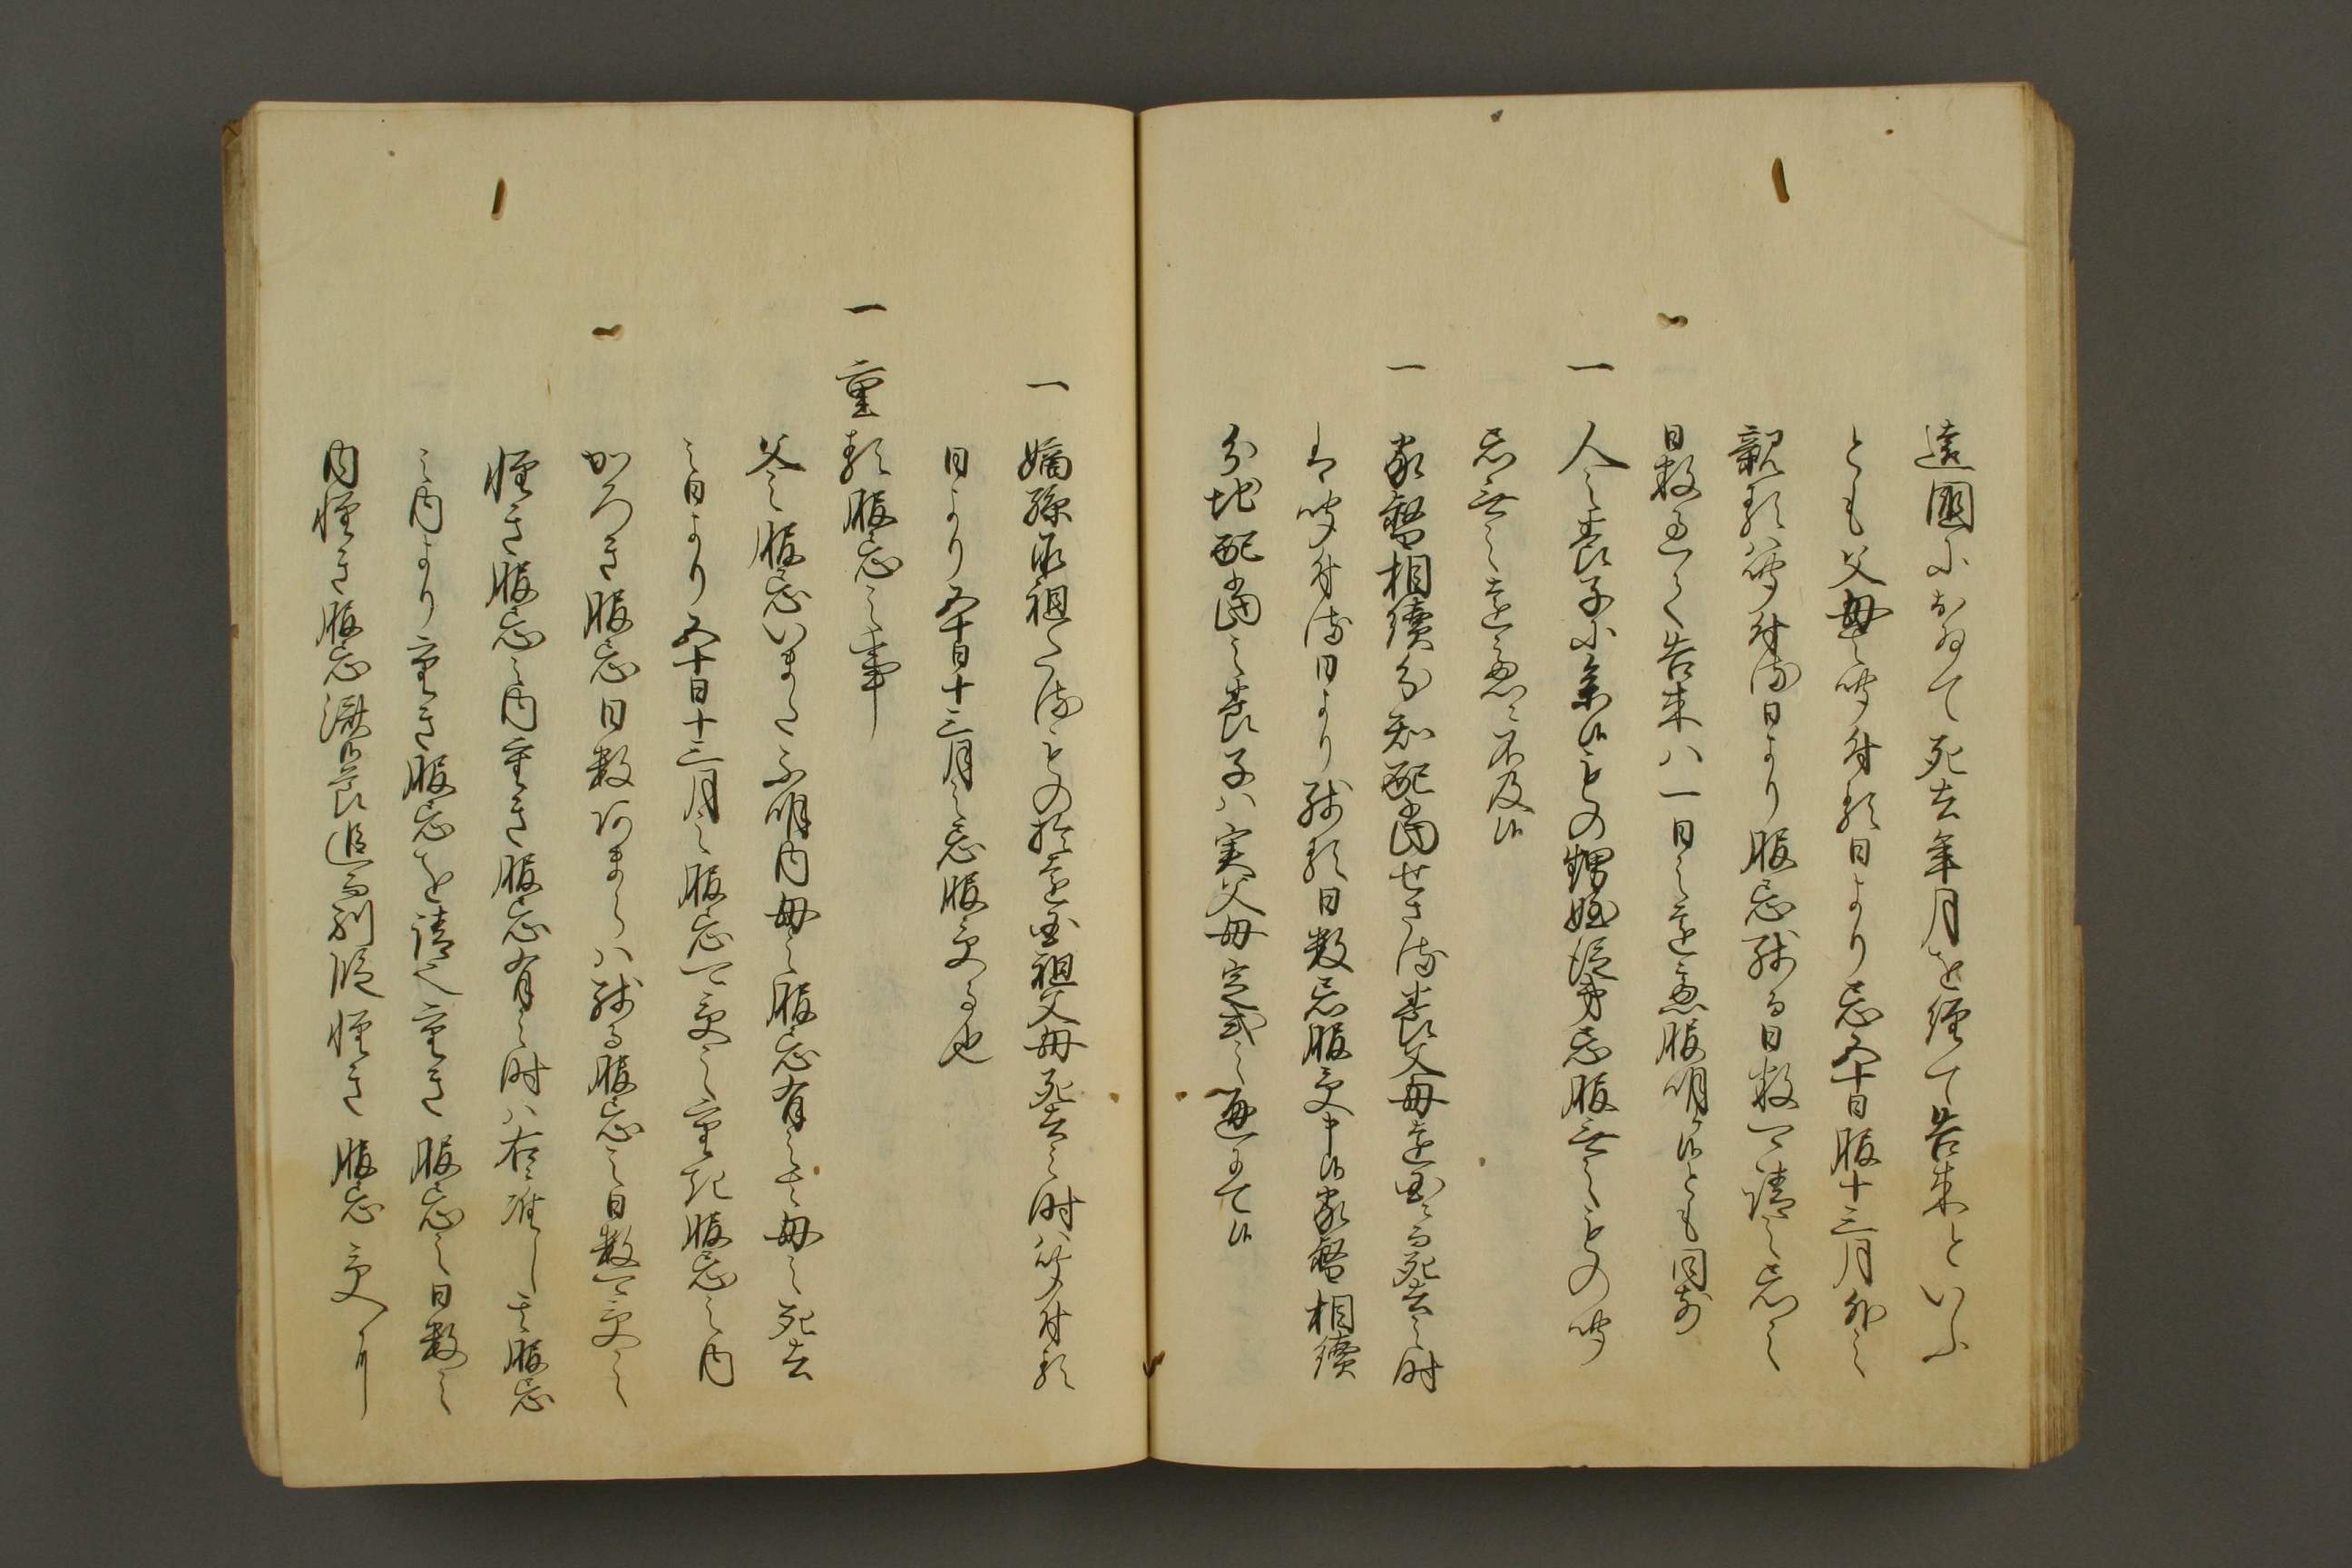 遠國におゐて死去年月を経て告来といふ
とも父母之聞付る日より忌五十日服十三月外之
親類ハ聞付る日より服忌残る日数可請之忌之
日数過て告来ハ一日之遠慮服明候とも同前
一人之養子に参候もの甥姪従弟忌服無之もの聞
忌無之遠慮ニ不及候
一家督相續分知配當せさる養父母遠国ニ而死去之時
は聞付る日より残る日数忌服受申候家督相續
分地配當之養子ハ実父母定式之通りて候
一嫡孫承祖たるもの於遠国祖父母死去之時ハ聞付る
日より五十日十三月之忌服受る也
一重る服忌之事
父之服忌いまた不明内母之服忌有之ハ母之死去
之日より五十日十三月之服忌可受之重記服忌之内
かろき服忌日数あまらハ残る服忌之日数可受之
軽き服忌之内重き服忌有之時ハ右ニ准し其服忌
之内より重き服忌を請也重き服忌之日数之
内軽き服忌済候ハ追而別段軽き服忌受ケ